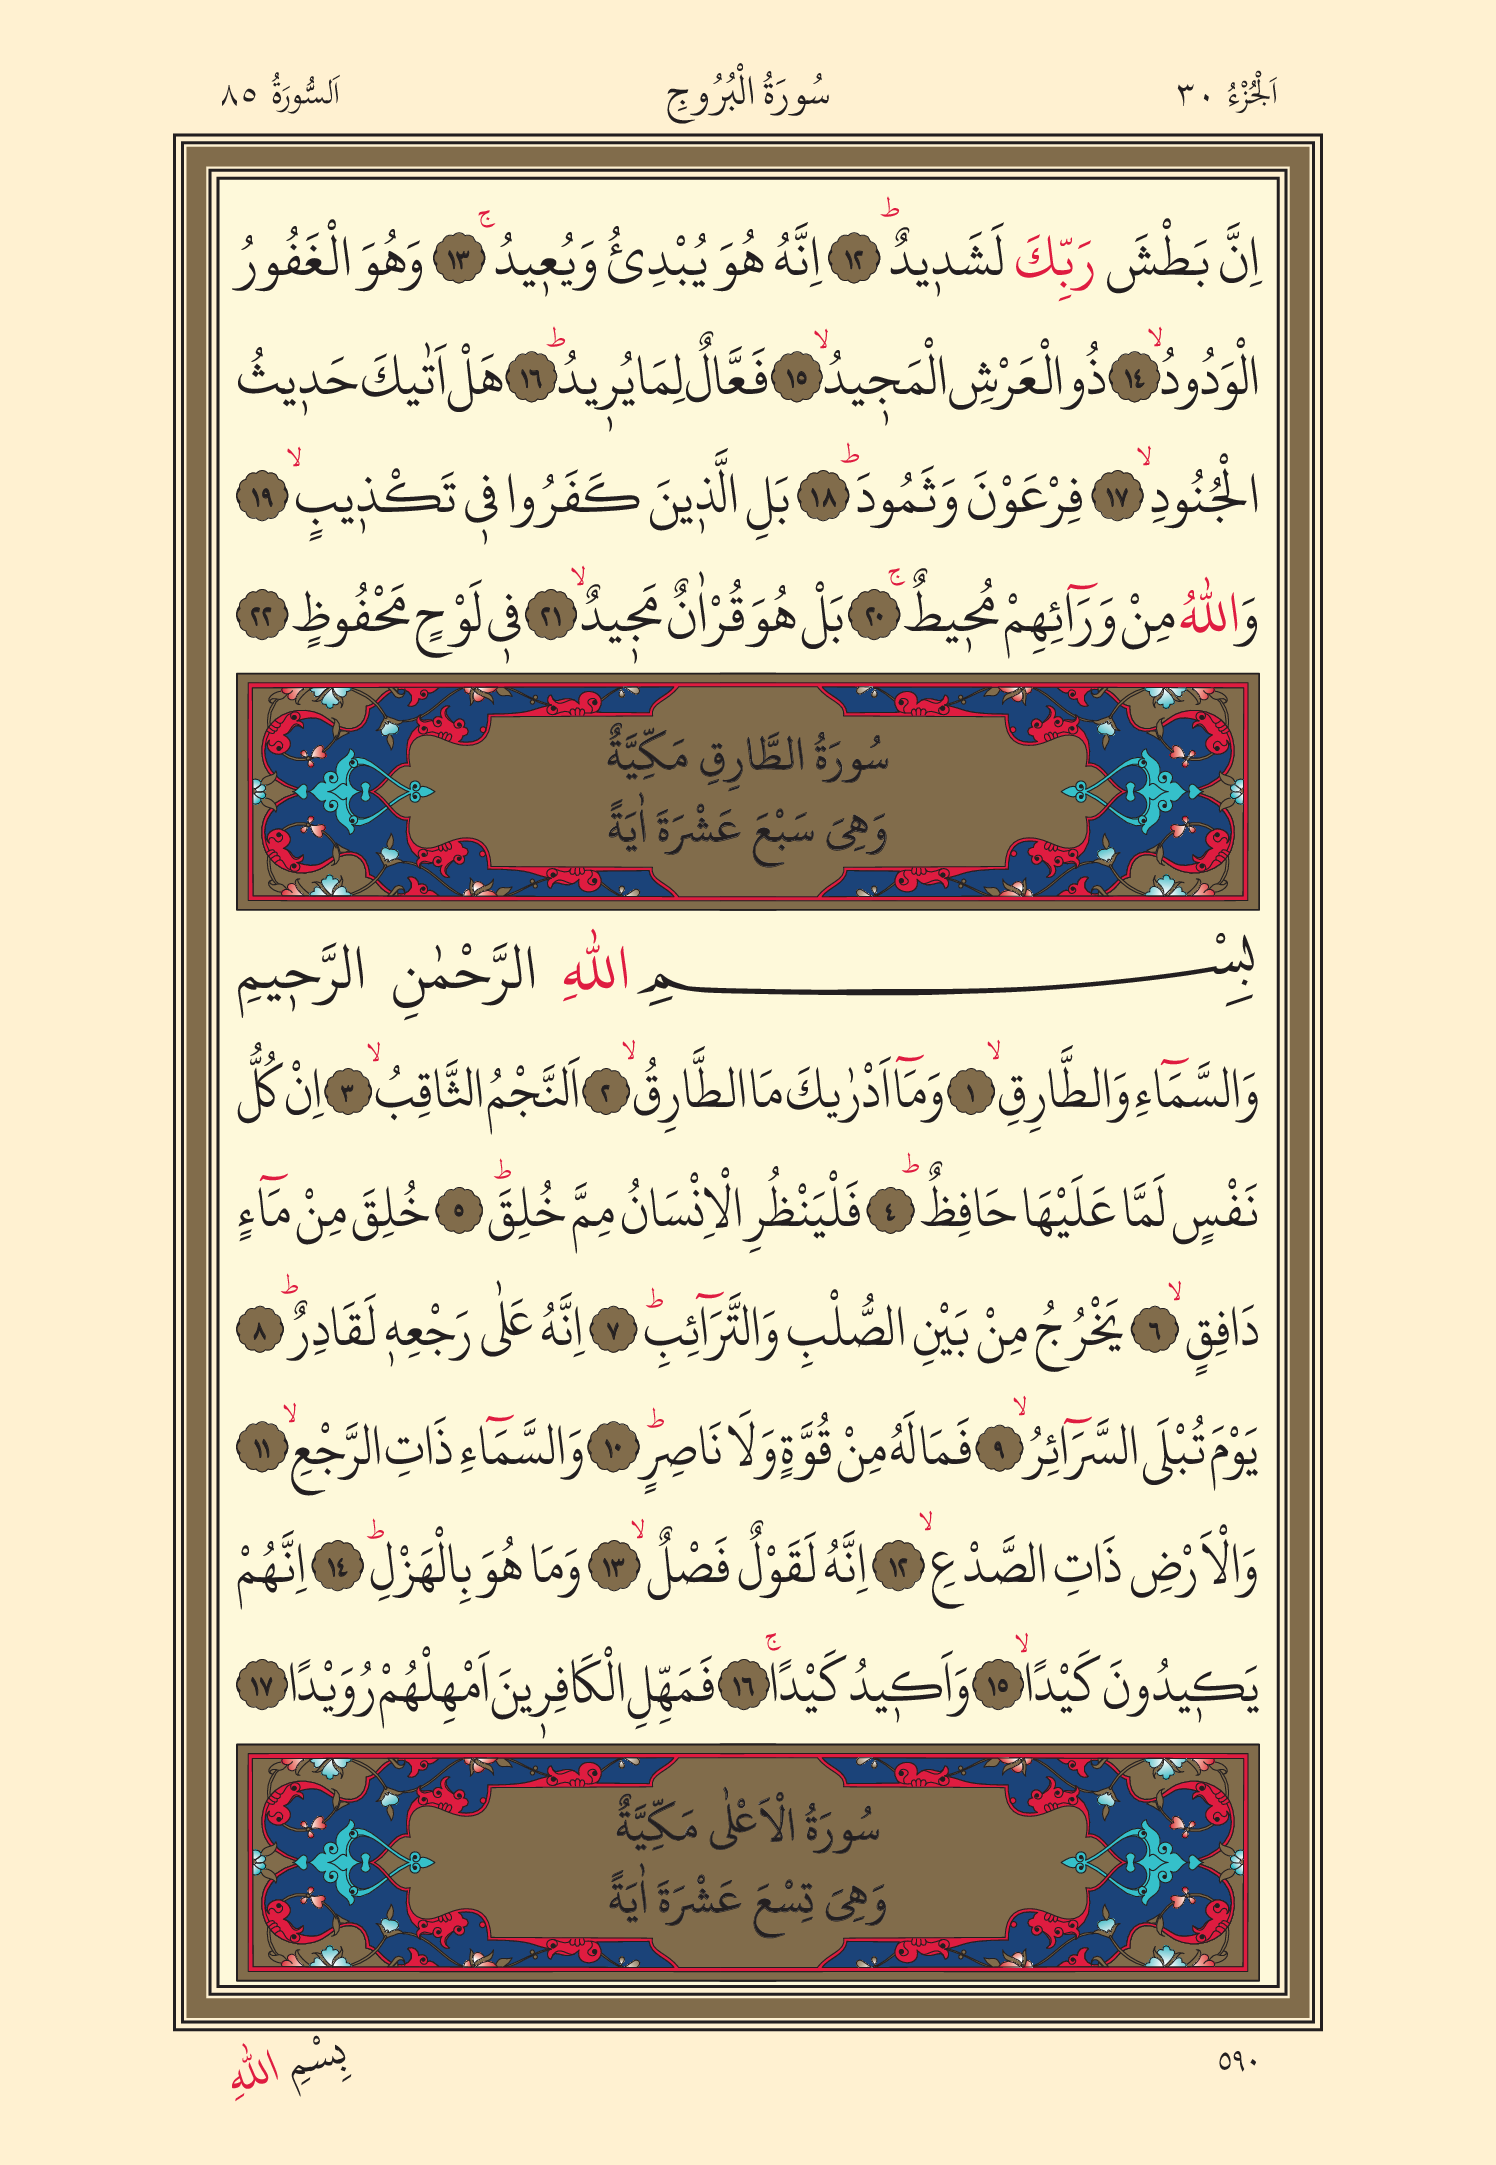 اَلْجُزْءُ ٣٠ سُورَةُ الْبُرُوجِ اَلسُّورَةُ ٨٥
اِنَّ بَطْشَ رَبِّكَ لَشَد۪يدٌۜ ﴿١٢﴾ اِنَّهُ هُوَ يُبْدِئُ وَيُع۪يدُۚ ﴿١٣﴾ وَهُوَ الْغَفُورُ
الْوَدُودُۙ ﴿١٤﴾ ذُو الْعَرْشِ الْمَج۪يدُۙ ﴿١٥﴾ فَعَّالٌ لِمَا يُر۪يدُۜ ﴿١٦﴾ هَلْ اَتٰيكَ حَد۪يثُ
الْجُنُودِۙ ﴿١٧﴾ فِرْعَوْنَ وَثَمُودَۜ ﴿١٨﴾ بَلِ الَّذ۪ينَ كَفَرُوا ف۪ي تَكْذ۪يبٍۙ ﴿١٩﴾
وَاللّٰهُ مِنْ وَرَٓائِهِمْ مُح۪يطٌۚ ﴿٢٠﴾ بَلْ هُوَ قُرْاٰنٌ مَج۪يدٌۙ ﴿٢١﴾ ف۪ي لَوْحٍ مَحْفُوظٍ ﴿٢٢﴾
سُورَةُ الطَّارِقِ مَكِّيَّةٌ
وَهِيَ سَبْعَ عَشْرَةَ اٰيَةً
بِسْمِ اللّٰهِ الرَّحْمٰنِ الرَّح۪يمِ
وَالسَّمَٓاءِ وَالطَّارِقِۙ ﴿١﴾ وَمَٓا اَدْرٰيكَ مَا الطَّارِقُۙ ﴿٢﴾ اَلنَّجْمُ الثَّاقِبُۙ ﴿٣﴾ اِنْ كُلُّ
نَفْسٍ لَمَّا عَلَيْهَا حَافِظٌۜ ﴿٤﴾ فَلْيَنْظُرِ الْاِنْسَانُ مِمَّ خُلِقَۜ ﴿٥﴾ خُلِقَ مِنْ مَٓاءٍ
دَافِقٍۙ ﴿٦﴾ يَخْرُجُ مِنْ بَيْنِ الصُّلْبِ وَالتَّرَٓائِبِۜ ﴿٧﴾ اِنَّهُ عَلٰى رَجْعِه۪ لَقَادِرٌۜ ﴿٨﴾
يَوْمَ تُبْلَى السَّرَٓائِرُۙ ﴿٩﴾ فَمَا لَهُ مِنْ قُوَّةٍ وَلَا نَاصِرٍۜ ﴿١٠﴾ وَالسَّمَٓاءِ ذَاتِ الرَّجْعِۙ ﴿١١﴾
وَالْاَرْضِ ذَاتِ الصَّدْعِۙ ﴿١٢﴾ اِنَّهُ لَقَوْلٌ فَصْلٌۙ ﴿١٣﴾ وَمَا هُوَ بِالْهَزْلِۜ ﴿١٤﴾ اِنَّهُمْ
يَك۪يدُونَ كَيْدًاۙ ﴿١٥﴾ وَاَك۪يدُ كَيْدًاۚ ﴿١٦﴾ فَمَهِّلِ الْكَافِر۪ينَ اَمْهِلْهُمْ رُوَيْدًا ﴿١٧﴾
سُورَةُ الْاَعْلٰى مَكِّيَّةٌ
وَهِيَ تِسْعَ عَشْرَةَ اٰيَةً
٥٩٠ بِسْمِ اللّٰهِ